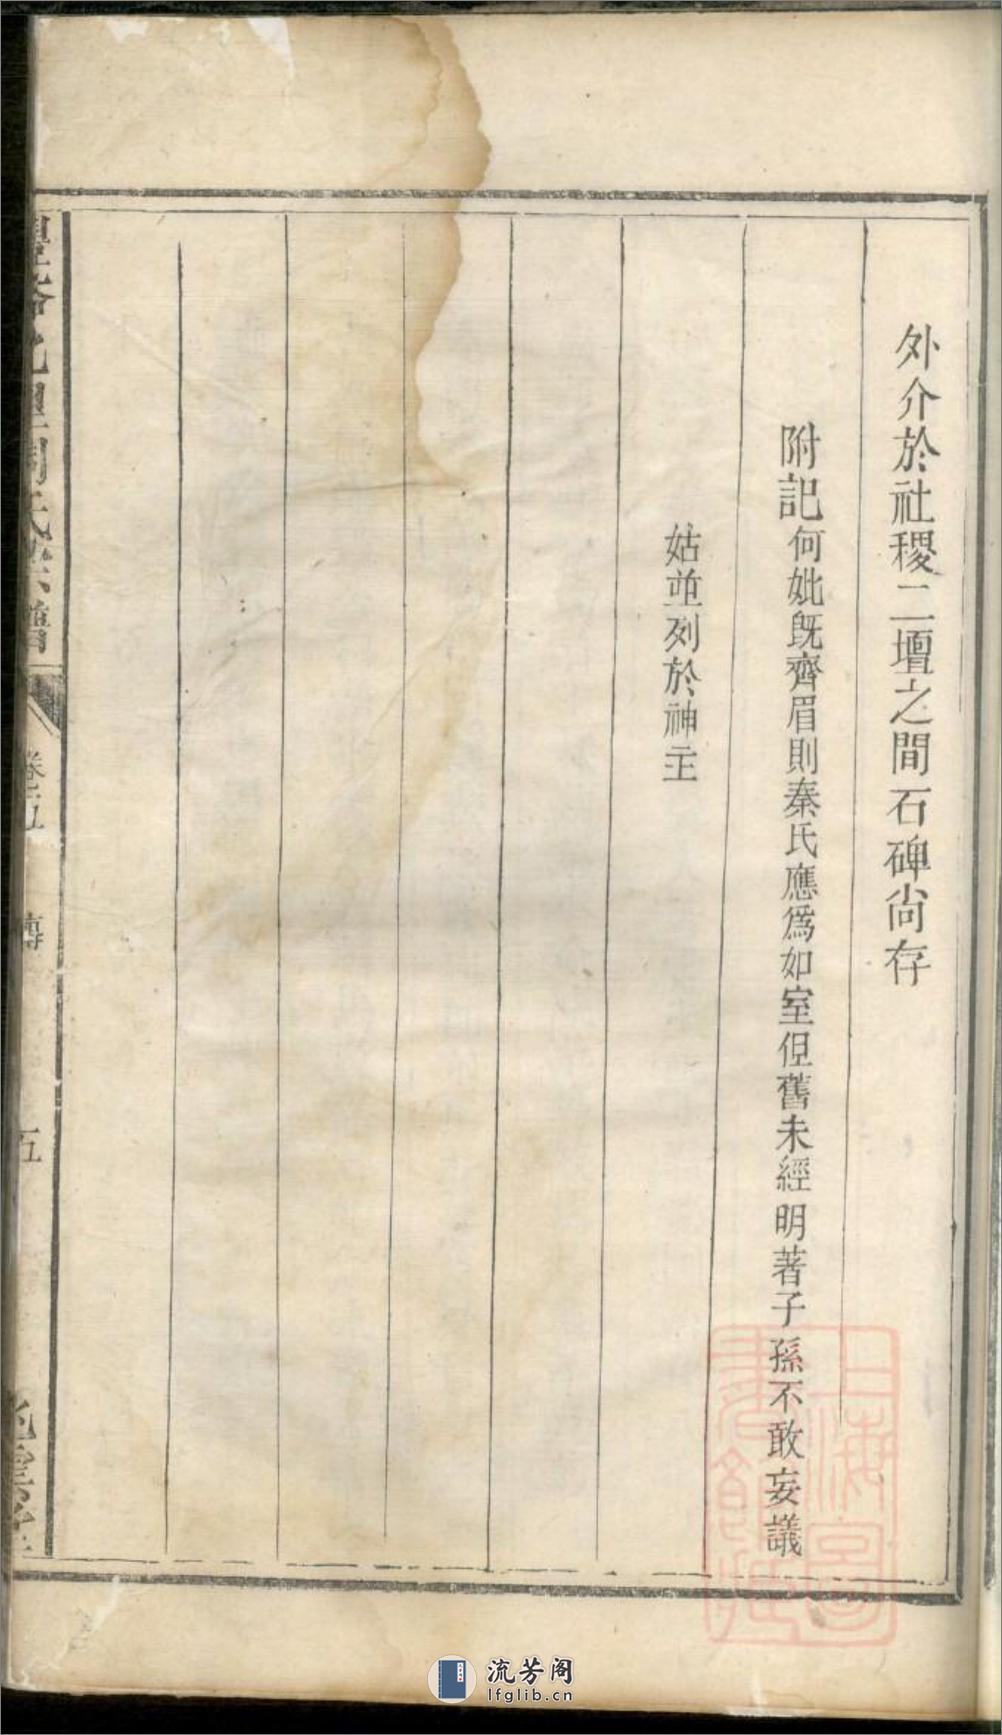 外介於社稷二壇之間石碑尙存
附記何妣既齊眉則秦氏應爲如室但舊未經明著子孫不敢妄議
姑並列於神主
氏宗譜
傳
五
上海圖
流芳阁
lfglib.cn